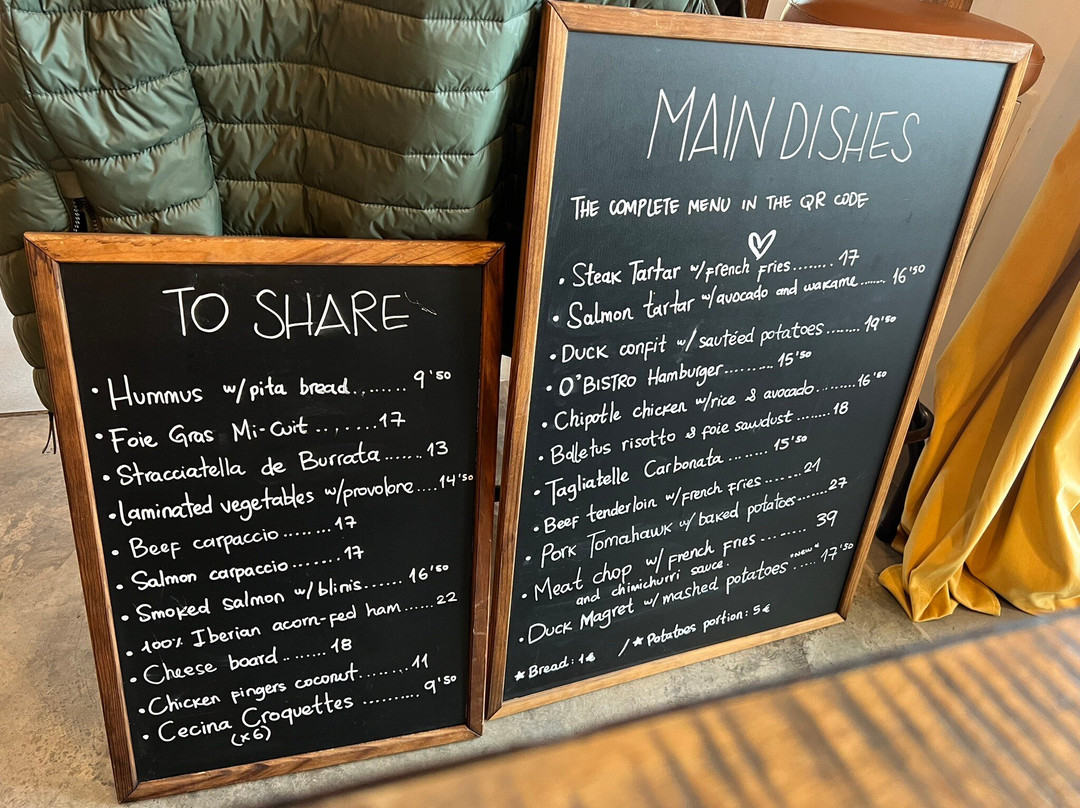 TO SHARE
• Hummus w/pita bread........ 9'50
• Foie Gras Mi-Cuit ........17
• Stracciatella de Burrata.......13
• Laminated vegetables w/provolone....14'50
• Beef carpaccio.......17
• Salmon carpaccio.......17
• Smoked salmon w/blinis...... 16'50
• 100% Iberian acorn-fed ham......22
• Cheese board........18
• Chicken fingers coconut........11
• Cecina Croquettes ......... 9'50
(x6)
MAIN DISHES
THE COMPLETE MENU IN THE QR CODE
• Steak Tartar w/french fries........ 17
• Salmon tartar w/avocado and wakame....... 16'50
• Duck confit w/ sautéed potatoes........ 19'50
• O'BISTRO Hamburger.......... 15'50
• Chipotle chicken w/rice & avocado.........16'50
• Bolletus risotto & foie sawdust ........18
• Tagliatelle Carbonata ........ 15'50
• Beef tenderloin w/french fries.......21
• Pork Tomahawk w/baked potatoes.......27
• Meat chop w/ french fries ......... 39
and chimichurri sauce.
• Duck Magret w/ mashed potatoes "new" ..... 17'50
★ Bread: 1€ / ★ Potatoes portion: 5€